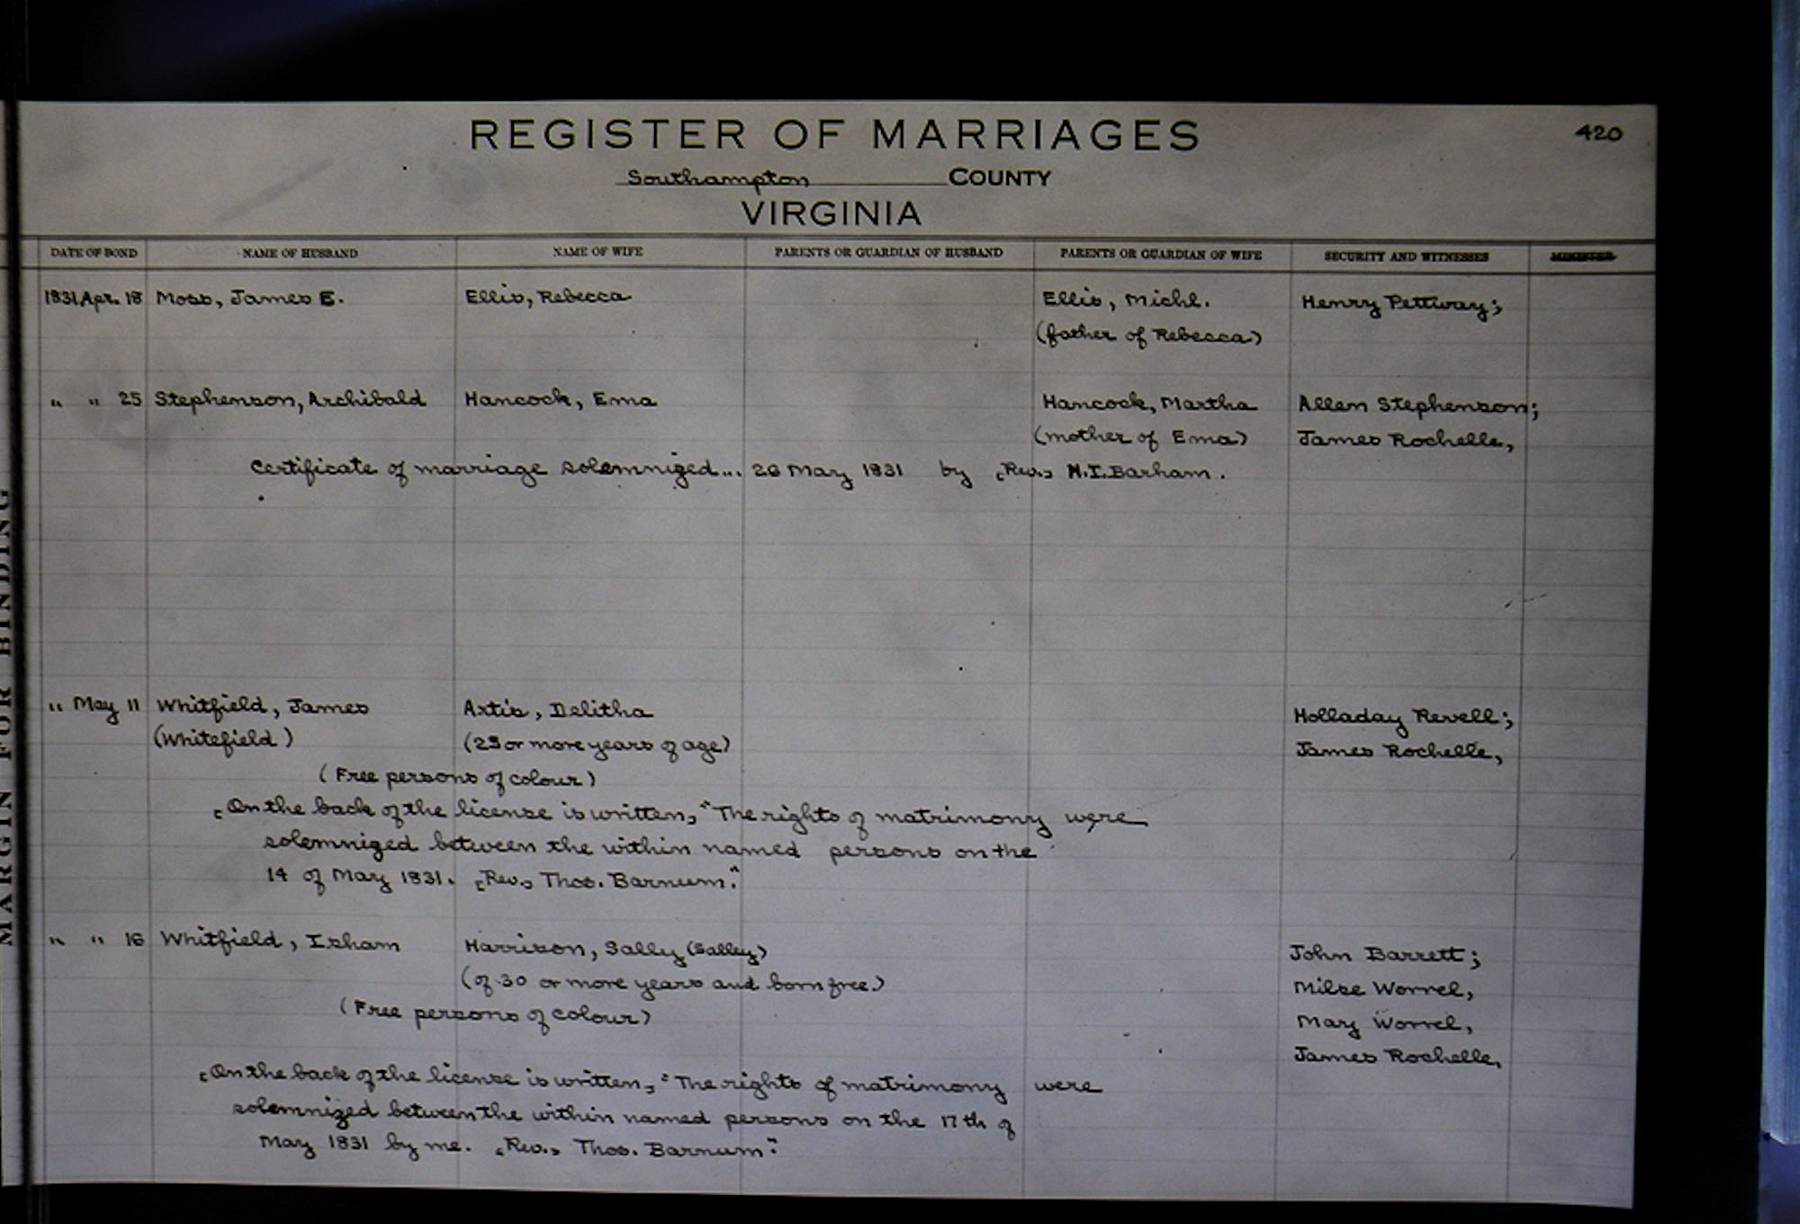 REGISTER OF MARRIAGES
420
Southampton COUNTY
VIRGINIA
DATE OF BOND NAME OF HUSBAND NAME OF WIFE PARENTS OR GUARDIAN OF HUSBAND PARENTS OR GUARDIAN OF WIFE SECURITY AND WITNESSES MINISTER
1831 Apr. 18 Moss, James E. Ellis, Rebecca Ellis, Michl. Henry Pettway;
(father of Rebecca)
" " 25 Stephenson, Archibald Hancock, Ema Hancock, Martha Allen Stephenson;
(mother of Ema) James Rochelle,
Certificate of marriage solemnized... 26 May 1831 by [Rev.] H.I. Barham.
" May 11 Whitfield, James Artis, Delitha Holladay Revell;
(Whitefield) (23 or more years of age) James Rochelle,
(Free persons of colour)
[On the back of the license is written,] "The rights of matrimony were
solemnized between the within named persons on the
14 of May 1831. [Rev.] Thos. Barnum."
" " 16 Whitfield, Isham Harrison, Sally (Salley) John Barrett;
(of 30 or more years and born free.) Milse Worrel,
(Free persons of colour) Mary Worrel,
James Rochelle,
[On the back of the license is written,] "The rights of matrimony were
solemnized between the within named persons on the 17th of
May 1831 by me. [Rev.] Thos. Barnum."
MARGIN FOR BINDING